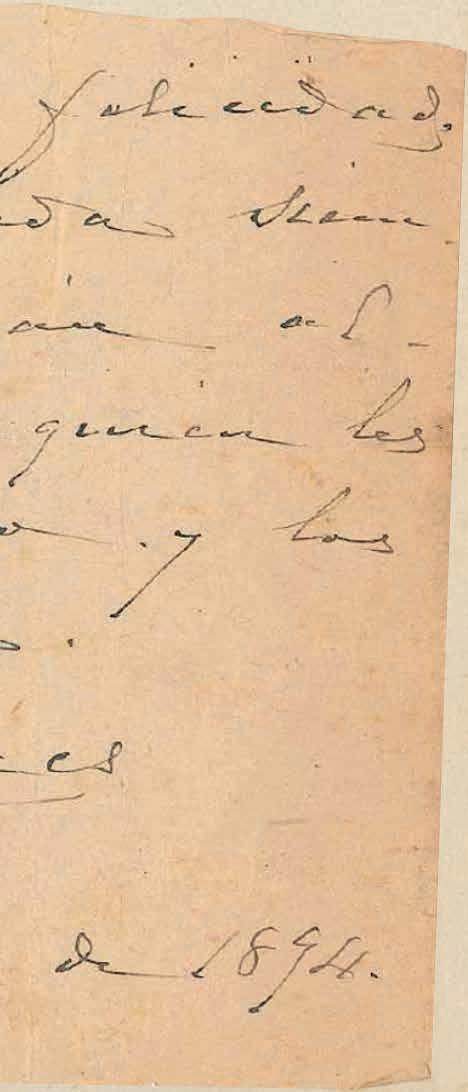 felicidad,
da siem
án al-
quien les
o y los
o.
ces
de 1894.